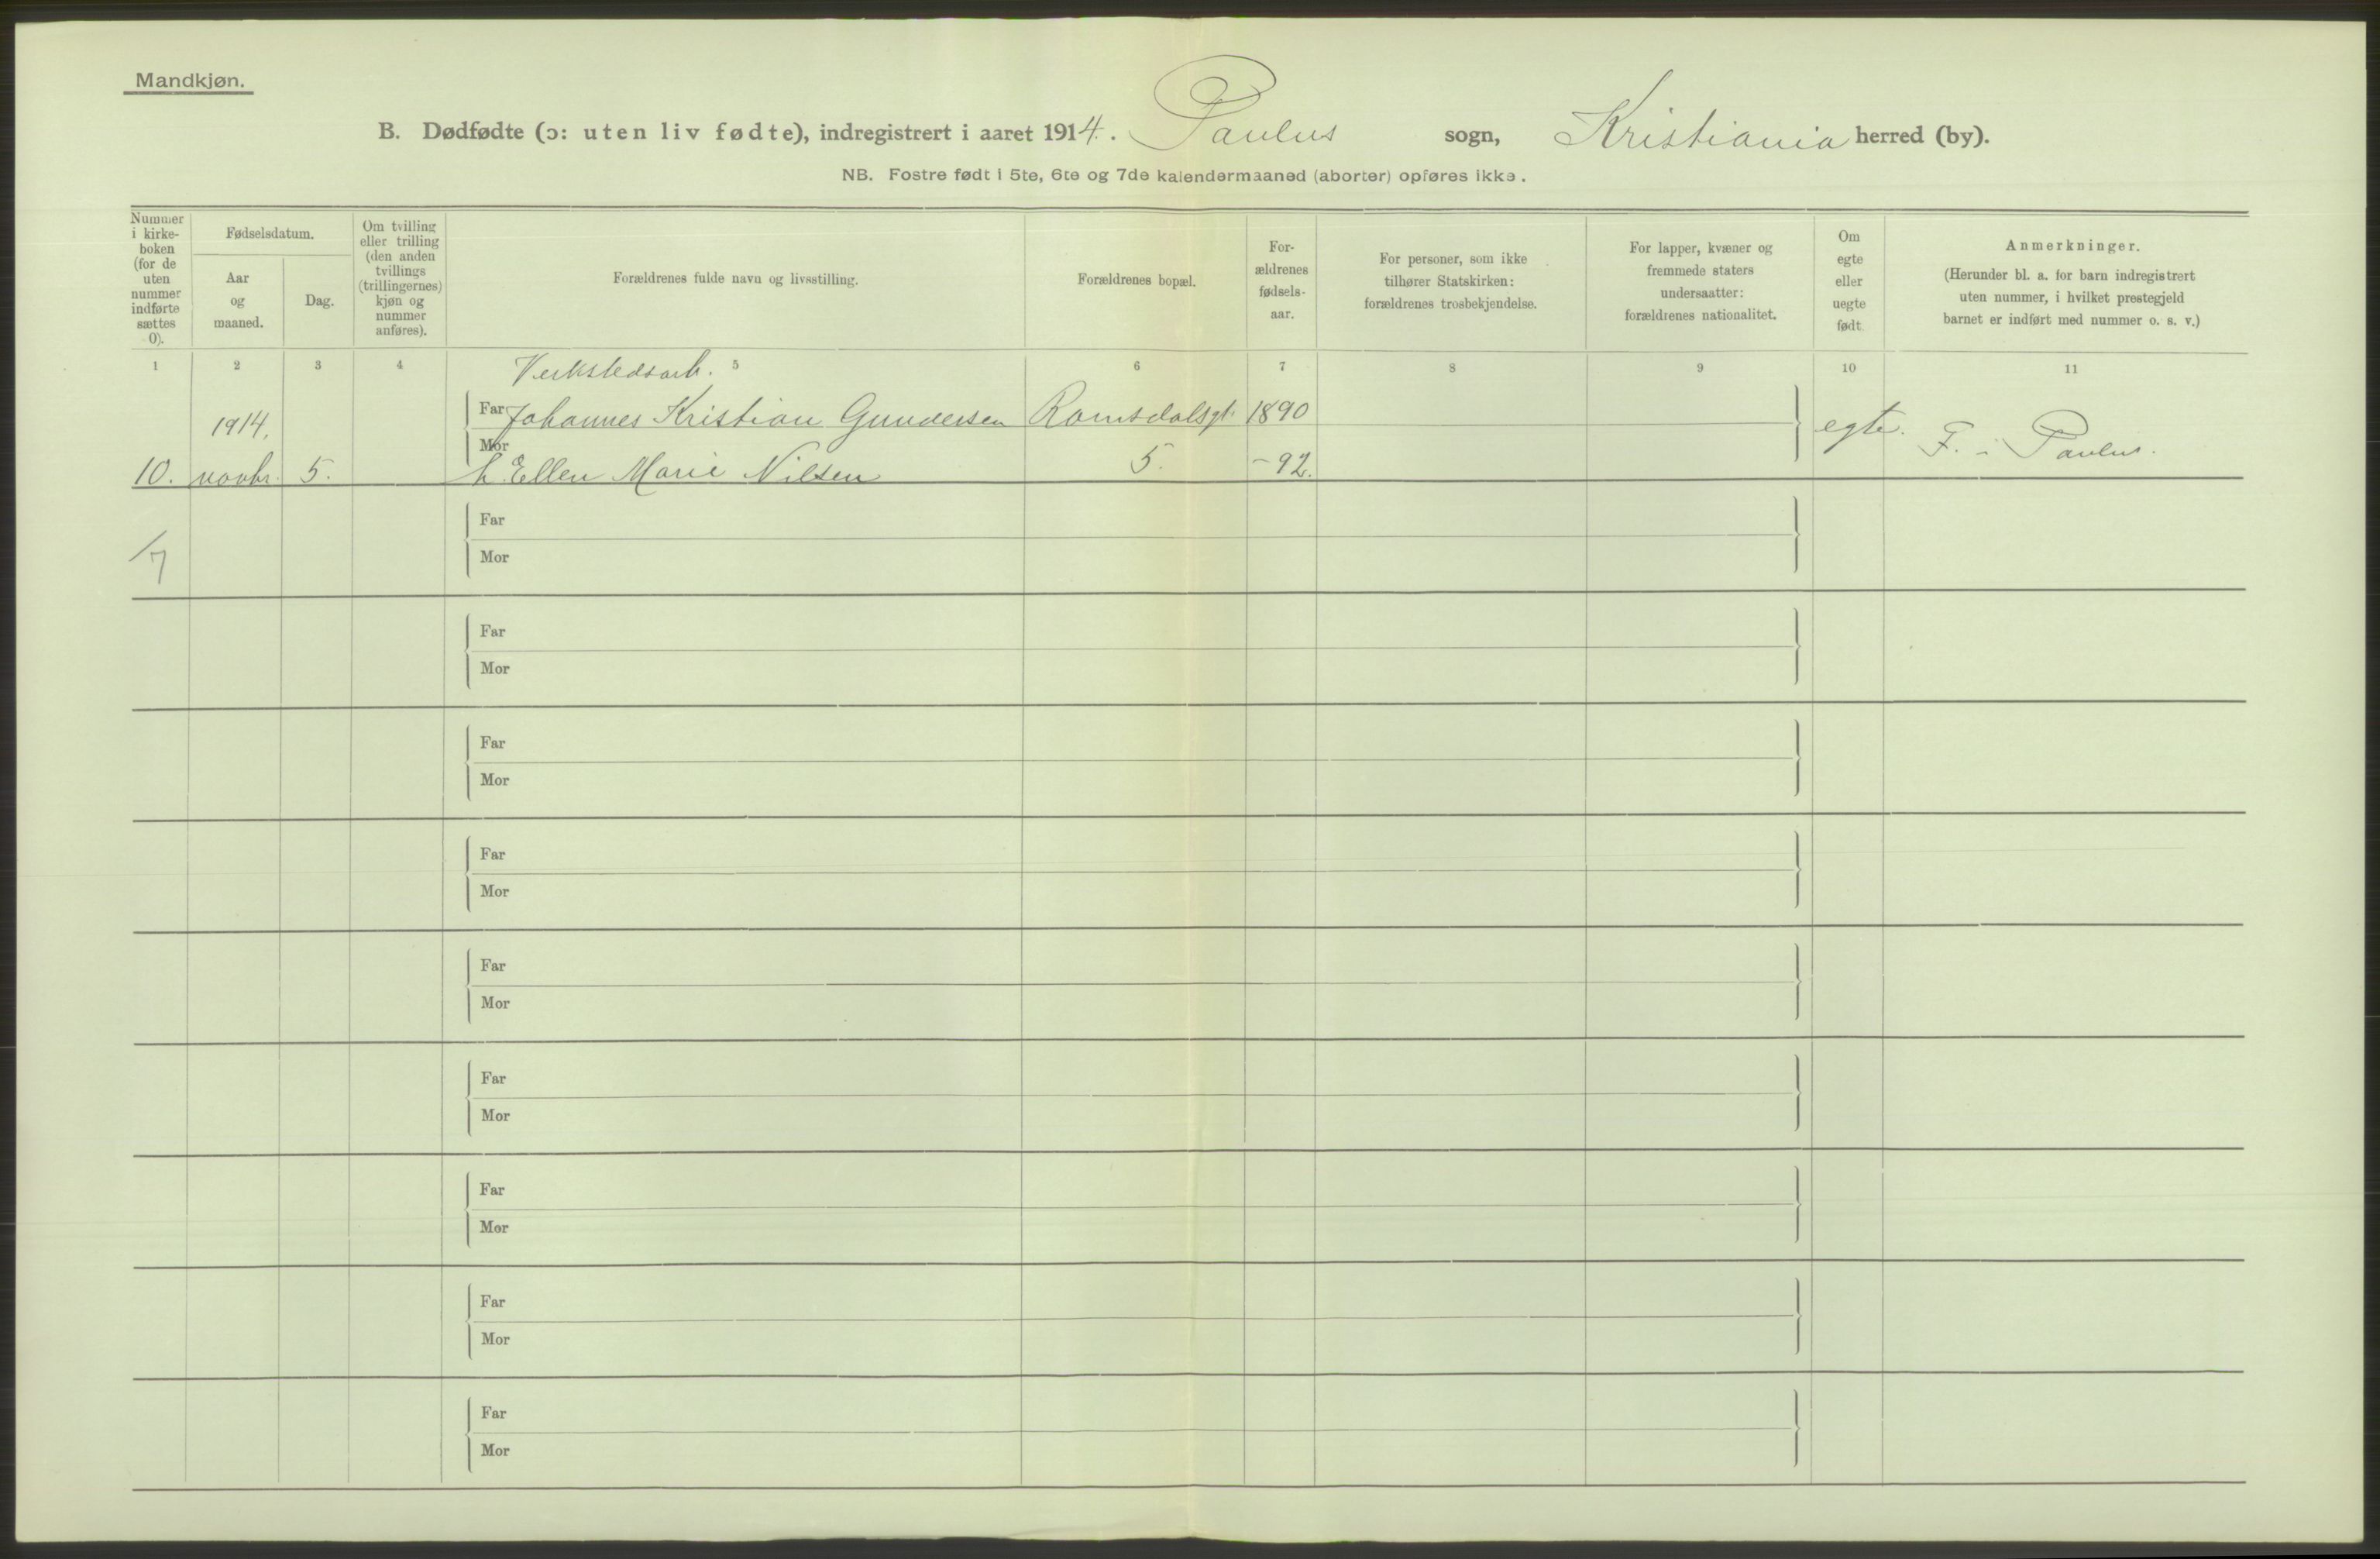 Mandkjøn.
B. Dødfødte (ɔ: uten liv fødte), indregistrert i aaret 1914. Paulus sogn, Kristiania herred (by).
NB. Fostre født i 5te, 6te og 7de kalendermaaned (aborter) opføres ikke.
Nummer
i kirke-
boken
(for de
uten
nummer
indførte
sættes
0).
Fødselsdatum.
Aar
og
maaned.
Dag.
Om tvilling
eller trilling
(den anden
tvillings
(trillingernes)
kjøn og
nummer
anføres).
Forældrenes fulde navn og livsstilling.
Forældrenes bopæl.
For-
ældrenes
fødsels-
aar.
For personer, som ikke
tilhører Statskirken:
forældrenes trosbekjendelse.
For lapper, kvæner og
fremmede staters
undersaatter:
forældrenes nationalitet.
Om
egte
eller
uegte
født.
Anmerkninger.
(Herunder bl. a. for barn indregistrert
uten nummer, i hvilket prestegjeld
barnet er indført med nummer o. s. v.)
1 2 3 4 5 6 7 8 9 10 11
Verkstedsarb.
1914. Far Johannes Kristian Gundersen Romsdalsgt. 1890 egte. F. i Paulus.
Mor
10. novbr. 5. h. Ellen Marie Nilsen 5. -92.
Far
/7
Mor
Far
Mor
Far
Mor
Far
Mor
Far
Mor
Far
Mor
Far
Mor
Far
Mor
Far
Mor